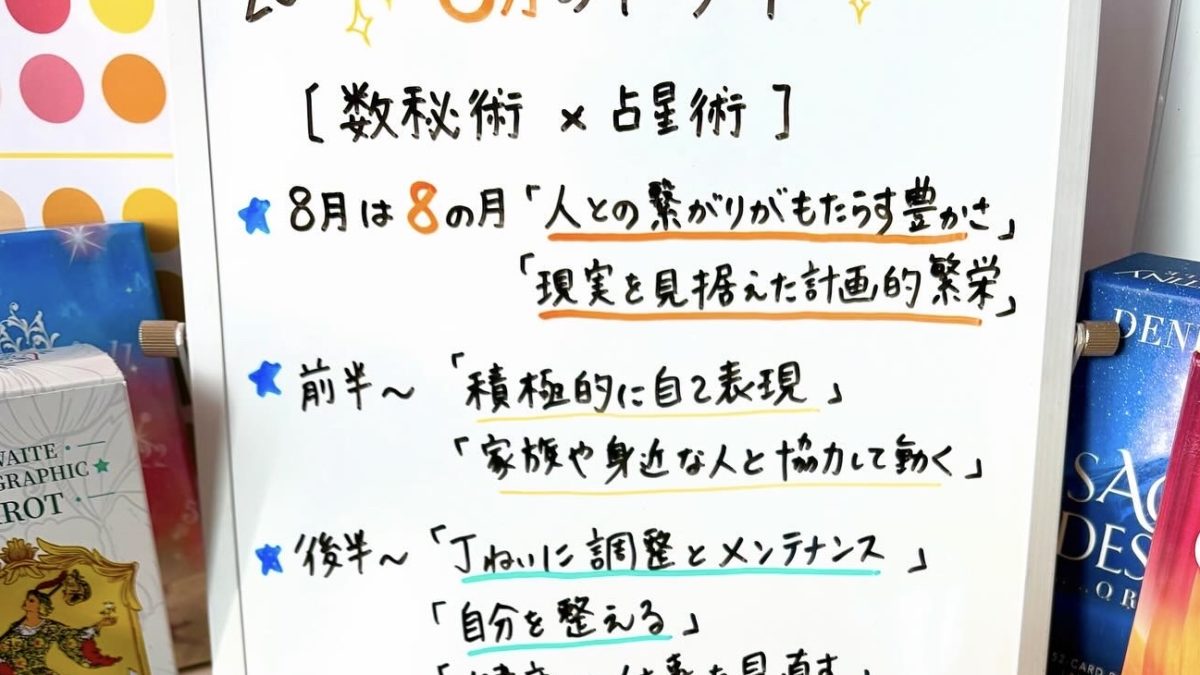 8月の
[ 数秘術 × 占星術 ]
★ 8月は8の月「人との繋がりがもたらす豊かさ」
「現実を見据えた計画的繁栄」
★ 前半〜 「積極的に自己表現」
「家族や身近な人と協力して動く」
★ 後半〜「丁ねいに調整とメンテナンス」
「自分を整える」
を見直す」
WAITE
GRAPHIC
ROT
DEN
SAC
DES
OR
52 CARD